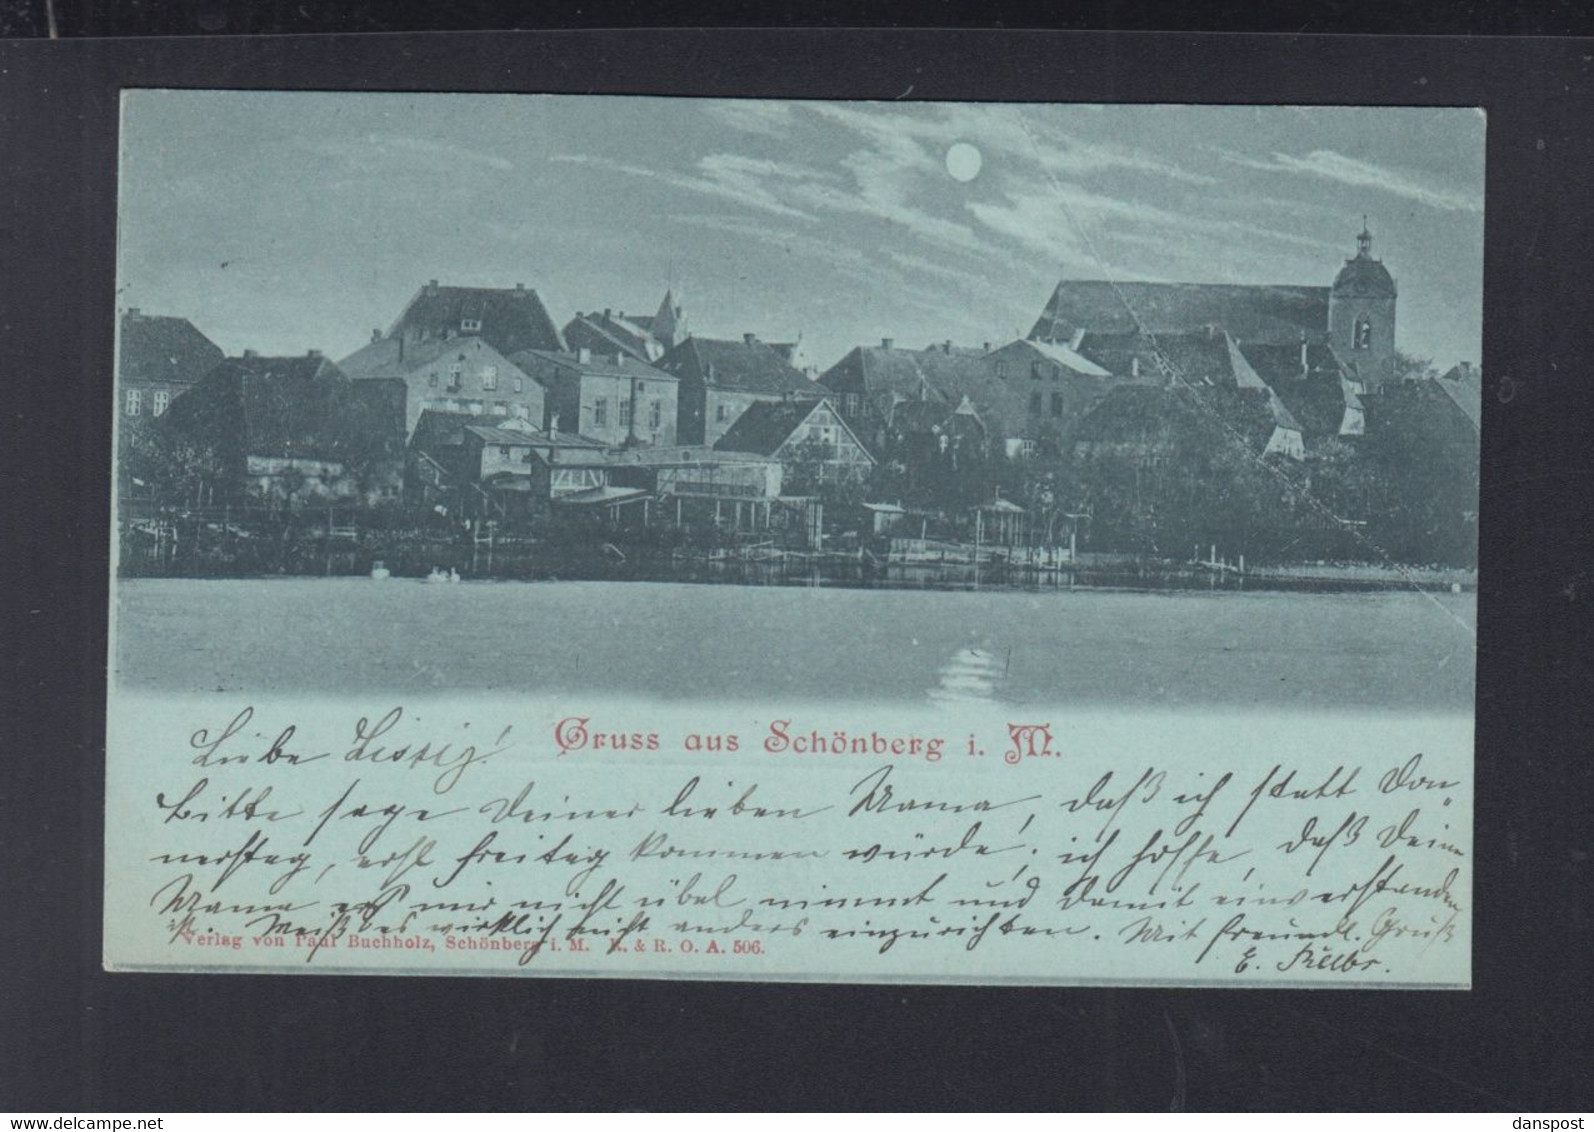 Gruss aus Schönberg i. M.
Liebe
Bitte sage Deiner lieben Mama, daß ich statt Don-
nerstag, erst Freitag kommen würde; ich hoffe, daß Deine
Mama es mir nicht übel nimmt und damit einverstanden
ist. Weiß es wirklich nicht anders einzurichten. Mit freundl. Gruß
E.
Verlag von Paul Buchholz, Schönberg i. M. K. & R. O. A. 506.
www.delcampe.net
danspost